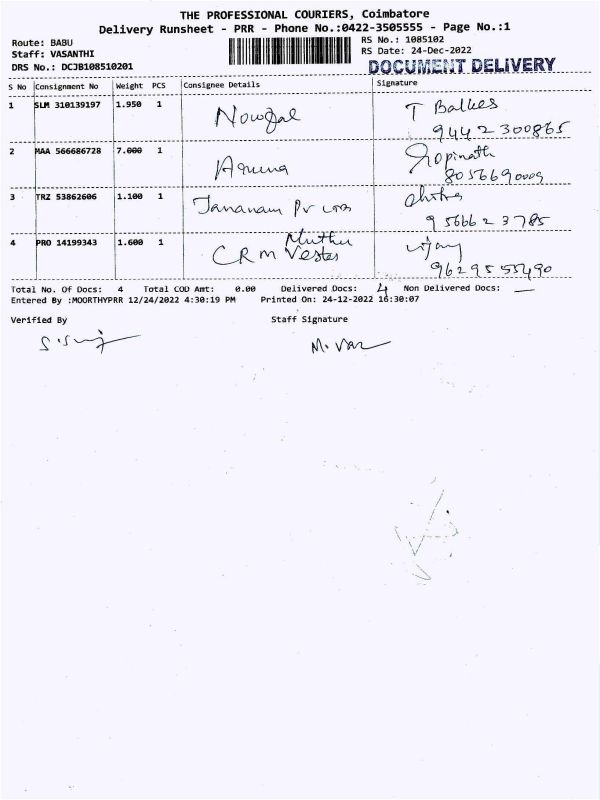 THE PROFESSIONAL COURIERS, Coimbatore
Delivery Runsheet - PRR - Phone No.:0422-3505555 - Page No.:1
Route: BABU
Staff: VASANTHI
DRS No.: DCJB108510201
RS No.: 1085102
RS Date: 24-Dec-2022
DOCUMENT DELIVERY
S No Consignment No Weight PCS Consignee Details Signature
1 SLM 310139197 1.950 1 T Balkes
9442300865
2 MAA 566686728 7.000 1 Aruna Gopinath
8056690009
3 TRZ 53862606 1.100 1 Chitra
9566623785
4 PRO 14199343 1.600 1 Muthu Vijay
CRM 9629555490
Total No. Of Docs: 4 Total COD Amt: 0.00 Delivered Docs: 4 Non Delivered Docs: —
Entered By :MOORTHYPRR 12/24/2022 4:30:19 PM Printed On: 24-12-2022 16:30:07
Verified By Staff Signature